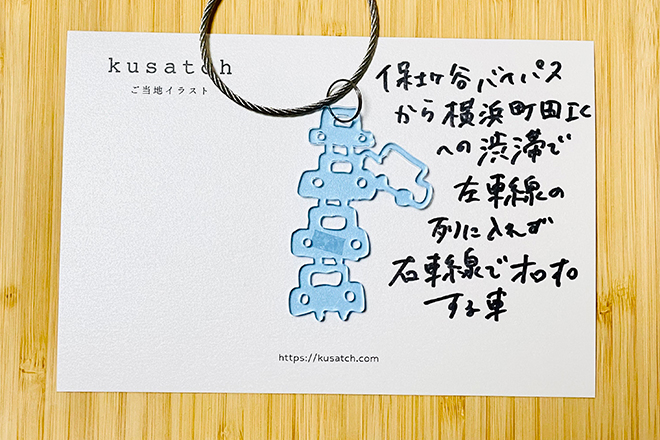 kusatch
ご当地イラスト
保土ヶ谷バイパス
から横浜町田IC
への渋滞で
左車線の
列に入れず
右車線でオロオロ
する車
https://kusatch.com